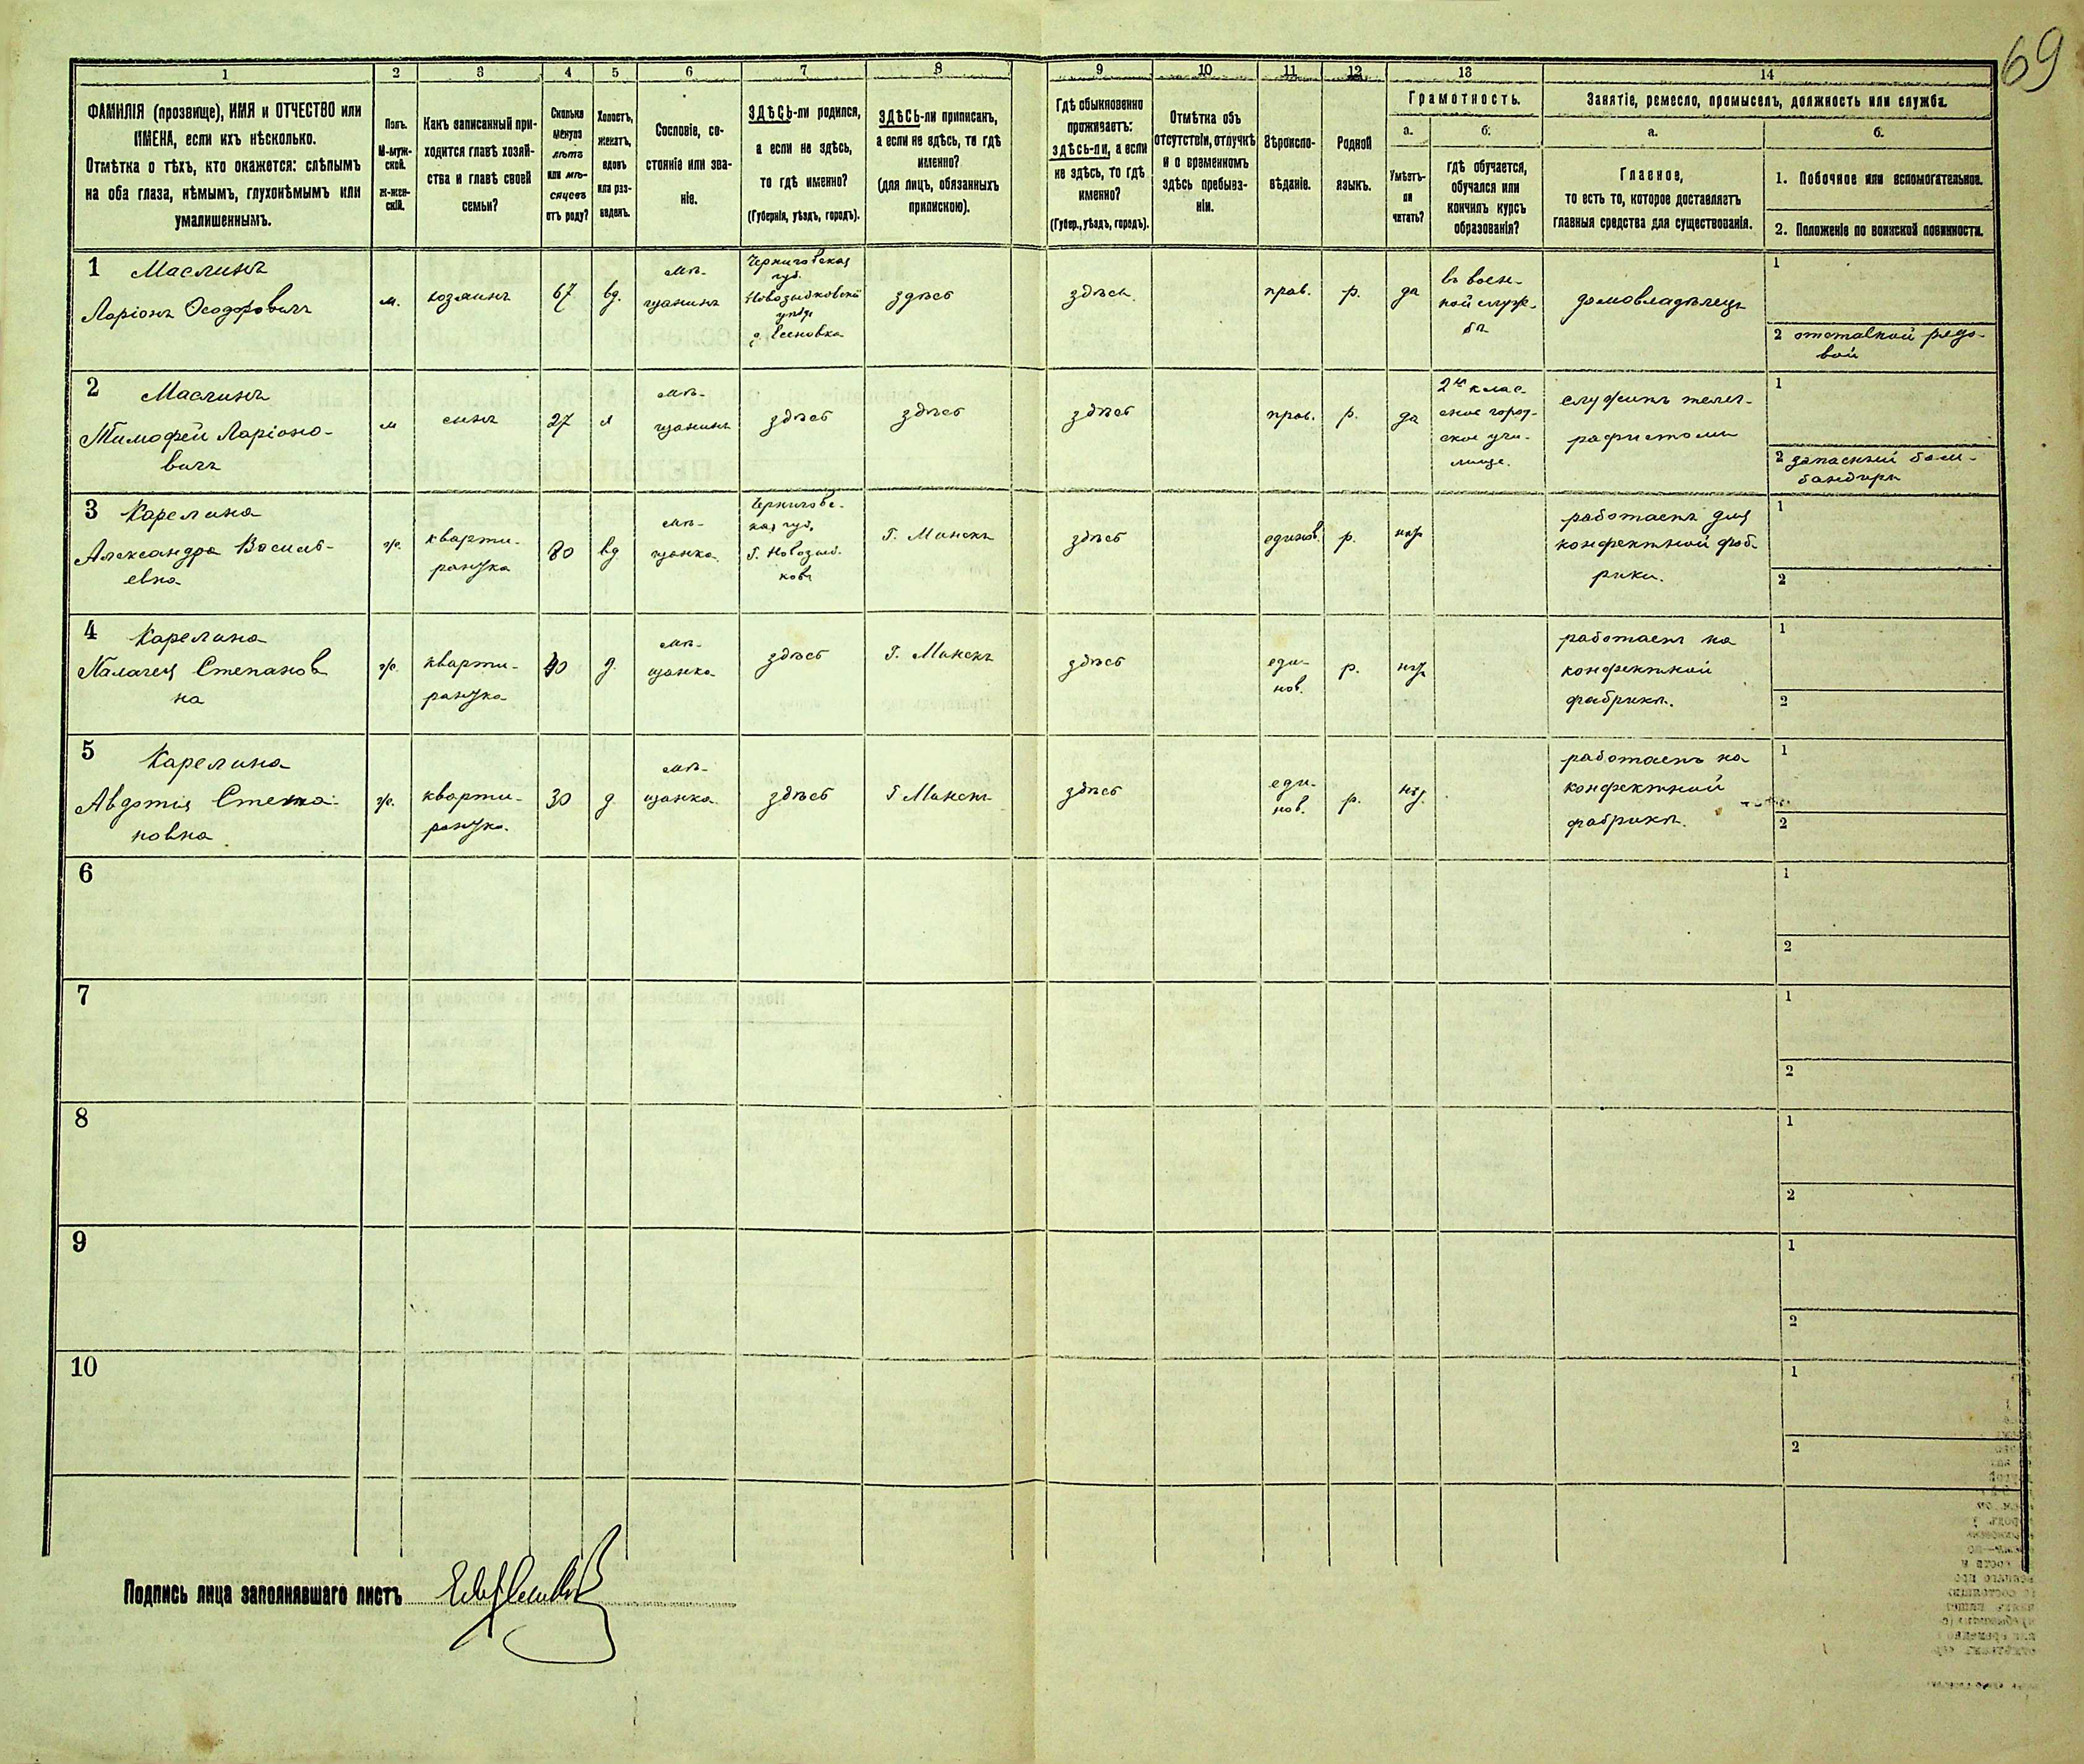 69
1 2 3 4 5 6 7 8 9 10 11 12 13 14
ФАМИЛІЯ (прозвище), ИМЯ и ОТЧЕСТВО или
ИМЕНА, если ихъ нѣсколько.
Отмѣтка о тѣхъ, кто окажется: слѣпымъ
на оба глаза, нѣмымъ, глухонѣмымъ или
умалишеннымъ.
Полъ.
М-муж-
ской.
ж-жен-
скій.
Какъ записанный при-
ходится главѣ хозяй-
ства и главѣ своей
семьи?
Сколько
минуло
лѣтъ
или мѣ-
сяцевъ
отъ роду?
Холостъ,
женатъ,
вдовъ
или раз-
веденъ.
Сословіе, со-
стояніе или зва-
ніе.
ЗДѢСЬ-ли родился,
а если не здѣсь,
то гдѣ именно?
(Губернія, уѣздъ, городъ).
ЗДѢСЬ-ли приписанъ,
а если не здѣсь, то гдѣ
именно?
(для лицъ, обязанныхъ
припискою).
Гдѣ обыкновенно
проживаетъ:
здѣсь-ли, а если
не здѣсь, то гдѣ
именно?
(Губер., уѣздъ, городъ).
Отмѣтка объ
отсутствіи, отлучкѣ
и о временномъ
здѣсь пребыва-
ніи.
Вѣроиспо-
вѣданіе.
Родной
языкъ.
Грамотность.
а.
Умѣетъ-
ли
читать?
б.
гдѣ обучается,
обучался или
кончилъ курсъ
образованія?
Занятіе, ремесло, промыселъ, должность или служба.
а.
Главное,
то есть то, которое доставляетъ
главныя средства для существованія.
б.
1. Побочное или вспомогательное.
2. Положеніе по воинской повинности.
1 Маслинъ
Ларіонъ Ѳеодоровичъ
м.
хозяинъ
67
вд.
мѣ-
щанинъ
Черниговская
губ.
Новозыбковскій
уѣзд.
здѣсь
здѣсь
прав.
р.
да
въ воен-
ной служ-
бѣ
домовладѣлецъ
1
2 отставной рядо-
вой
2 Маслинъ
Тимофей Ларіоно-
вичъ
м
сынъ
27
х
мѣ-
щанинъ
здѣсь
здѣсь
здѣсь
прав.
р.
да
2хъ клас-
сное город-
ское учи-
лище.
служитъ телег-
рафистомъ
1
2 запасный бом-
бандиръ
3 Карелина
Александра Василь-
евна
ж.
кварти-
рантка
80
вд
мѣ-
щанка
Черниговс-
кая губ,
Г. Новозыб-
ковъ
Г. Минскъ
здѣсь
единов.
р.
нѣт
работаетъ для
конфектной фаб-
рики.
1
2
4 Карелина
Палагея Степанов
на
ж.
кварти-
рантка
40
д.
мѣ-
щанка
здѣсь
Г. Минскъ
здѣсь
еди-
нов.
р.
нѣт
работаетъ на
конфектной
фабрикѣ.
1
2
5 Карелина
Авдотія Степа-
новна
ж.
кварти-
рантка.
30
д
мѣ-
щанка
здѣсь
Г Минскъ
здѣсь
еди-
нов.
р.
нѣт.
работаетъ на
конфектной
фабрикѣ.
1
2
6
1
2
7
1
2
8
1
2
9
1
2
10
1
2
Подпись лица заполнявшаго листъ